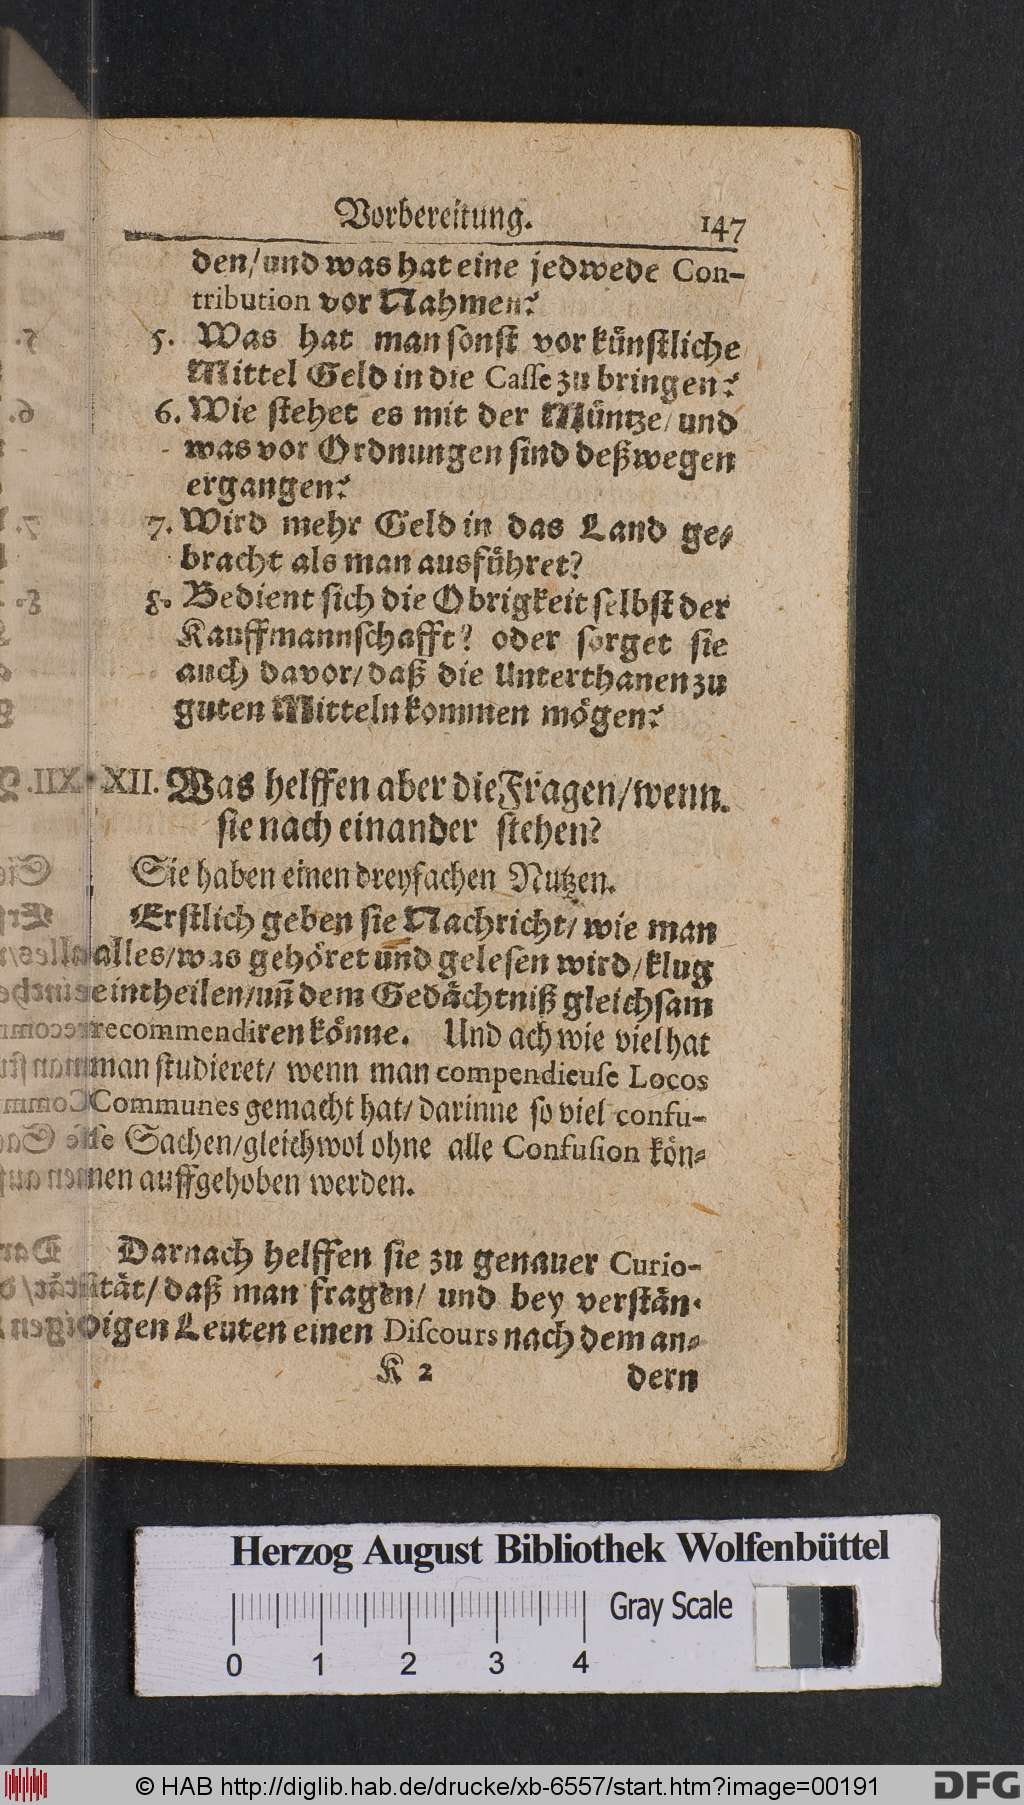 Vorbereitung. 147
den/ und was hat eine jedwede Con-
tribution vor Nahmen?
5. Was hat man sonst vor künstliche
Mittel Geld in die Casse zu bringen?
6. Wie stehet es mit der Müntze/ und
was vor Ordnungen sind deßwegen
ergangen?
7. Wird mehr Geld in das Land ge-
bracht als man ausführet?
8. Bedient sich die Obrigkeit selbst der
Kauffmannschafft? oder sorget sie
auch davor/ daß die Unterthanen zu
guten Mitteln kommen mögen?
XII. Was helffen aber die Fragen/ wenn
sie nach einander stehen?
Sie haben einen dreyfachen Nutzen.
Erstlich geben sie Nachricht/ wie man
alles/ was gehöret und gelesen wird/ klug
eintheilen/ uñ dem Gedächtniß gleichsam
recommendiren könne. Und ach wie viel hat
man studieret/ wenn man compendieuse Locos
Communes gemacht hat/ darinne so viel confu-
se Sachen/ gleichwol ohne alle Confusion kön-
nen auffgehoben werden.
Darnach helffen sie zu genauer Curio-
sität/ daß man fragen/ und bey verstän-
digen Leuten einen Discours nach dem an-
K 2 dern
Herzog August Bibliothek Wolfenbüttel
Gray Scale
0 1 2 3 4
© HAB http://diglib.hab.de/drucke/xb-6557/start.htm?image=00191
DFG